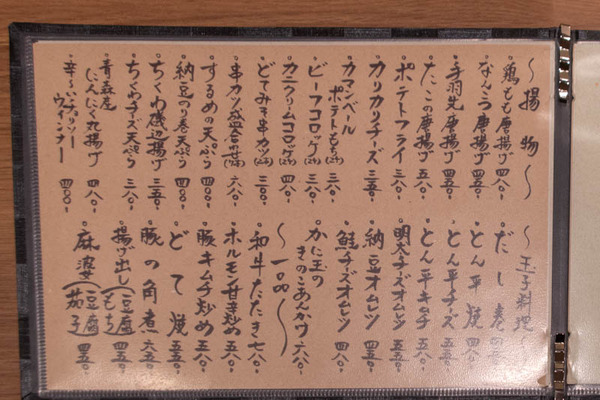 〜揚物〜
鶏もも唐揚げ 四八〇
なんこつ唐揚げ 四五〇
手羽先唐揚げ 四五〇
たこの唐揚げ 五八〇
ポテトフライ 三八〇
カリカリチーズ 三五〇
カマンベール
ポテトもち 三八〇
ビーフコロッケ 三八〇
カニクリームコロッケ 四八〇
どてみそ串カツ 三八〇
串カツ盛合せ 六八〇
するめの天ぷら 四八〇
納豆のり巻天ぷら 四八〇
ちくわ磯辺揚げ 三五〇
ちくわチーズ天ぷら 三八〇
青森産
にんにく丸揚げ 四八〇
辛〜いチョリソー
ウインナー 四〇〇
〜玉子料理〜
だし巻
とん平焼 四八〇
とん平チーズ 五五〇
とん平キムチ 五五〇
明太チーズオムレツ 五五〇
納豆オムレツ 四五〇
鮭チーズオムレツ 四八〇
かに玉の
きのこあんかけ 六八〇
〜一品〜
和牛たたき 七八〇
ホルモン甘辛炒め 五八〇
豚キムチ炒め 五八〇
どて焼 五五〇
豚の角煮 六五〇
揚げ出し（豆腐 もち） 四五〇
麻婆（豆腐 茄子） 四五〇